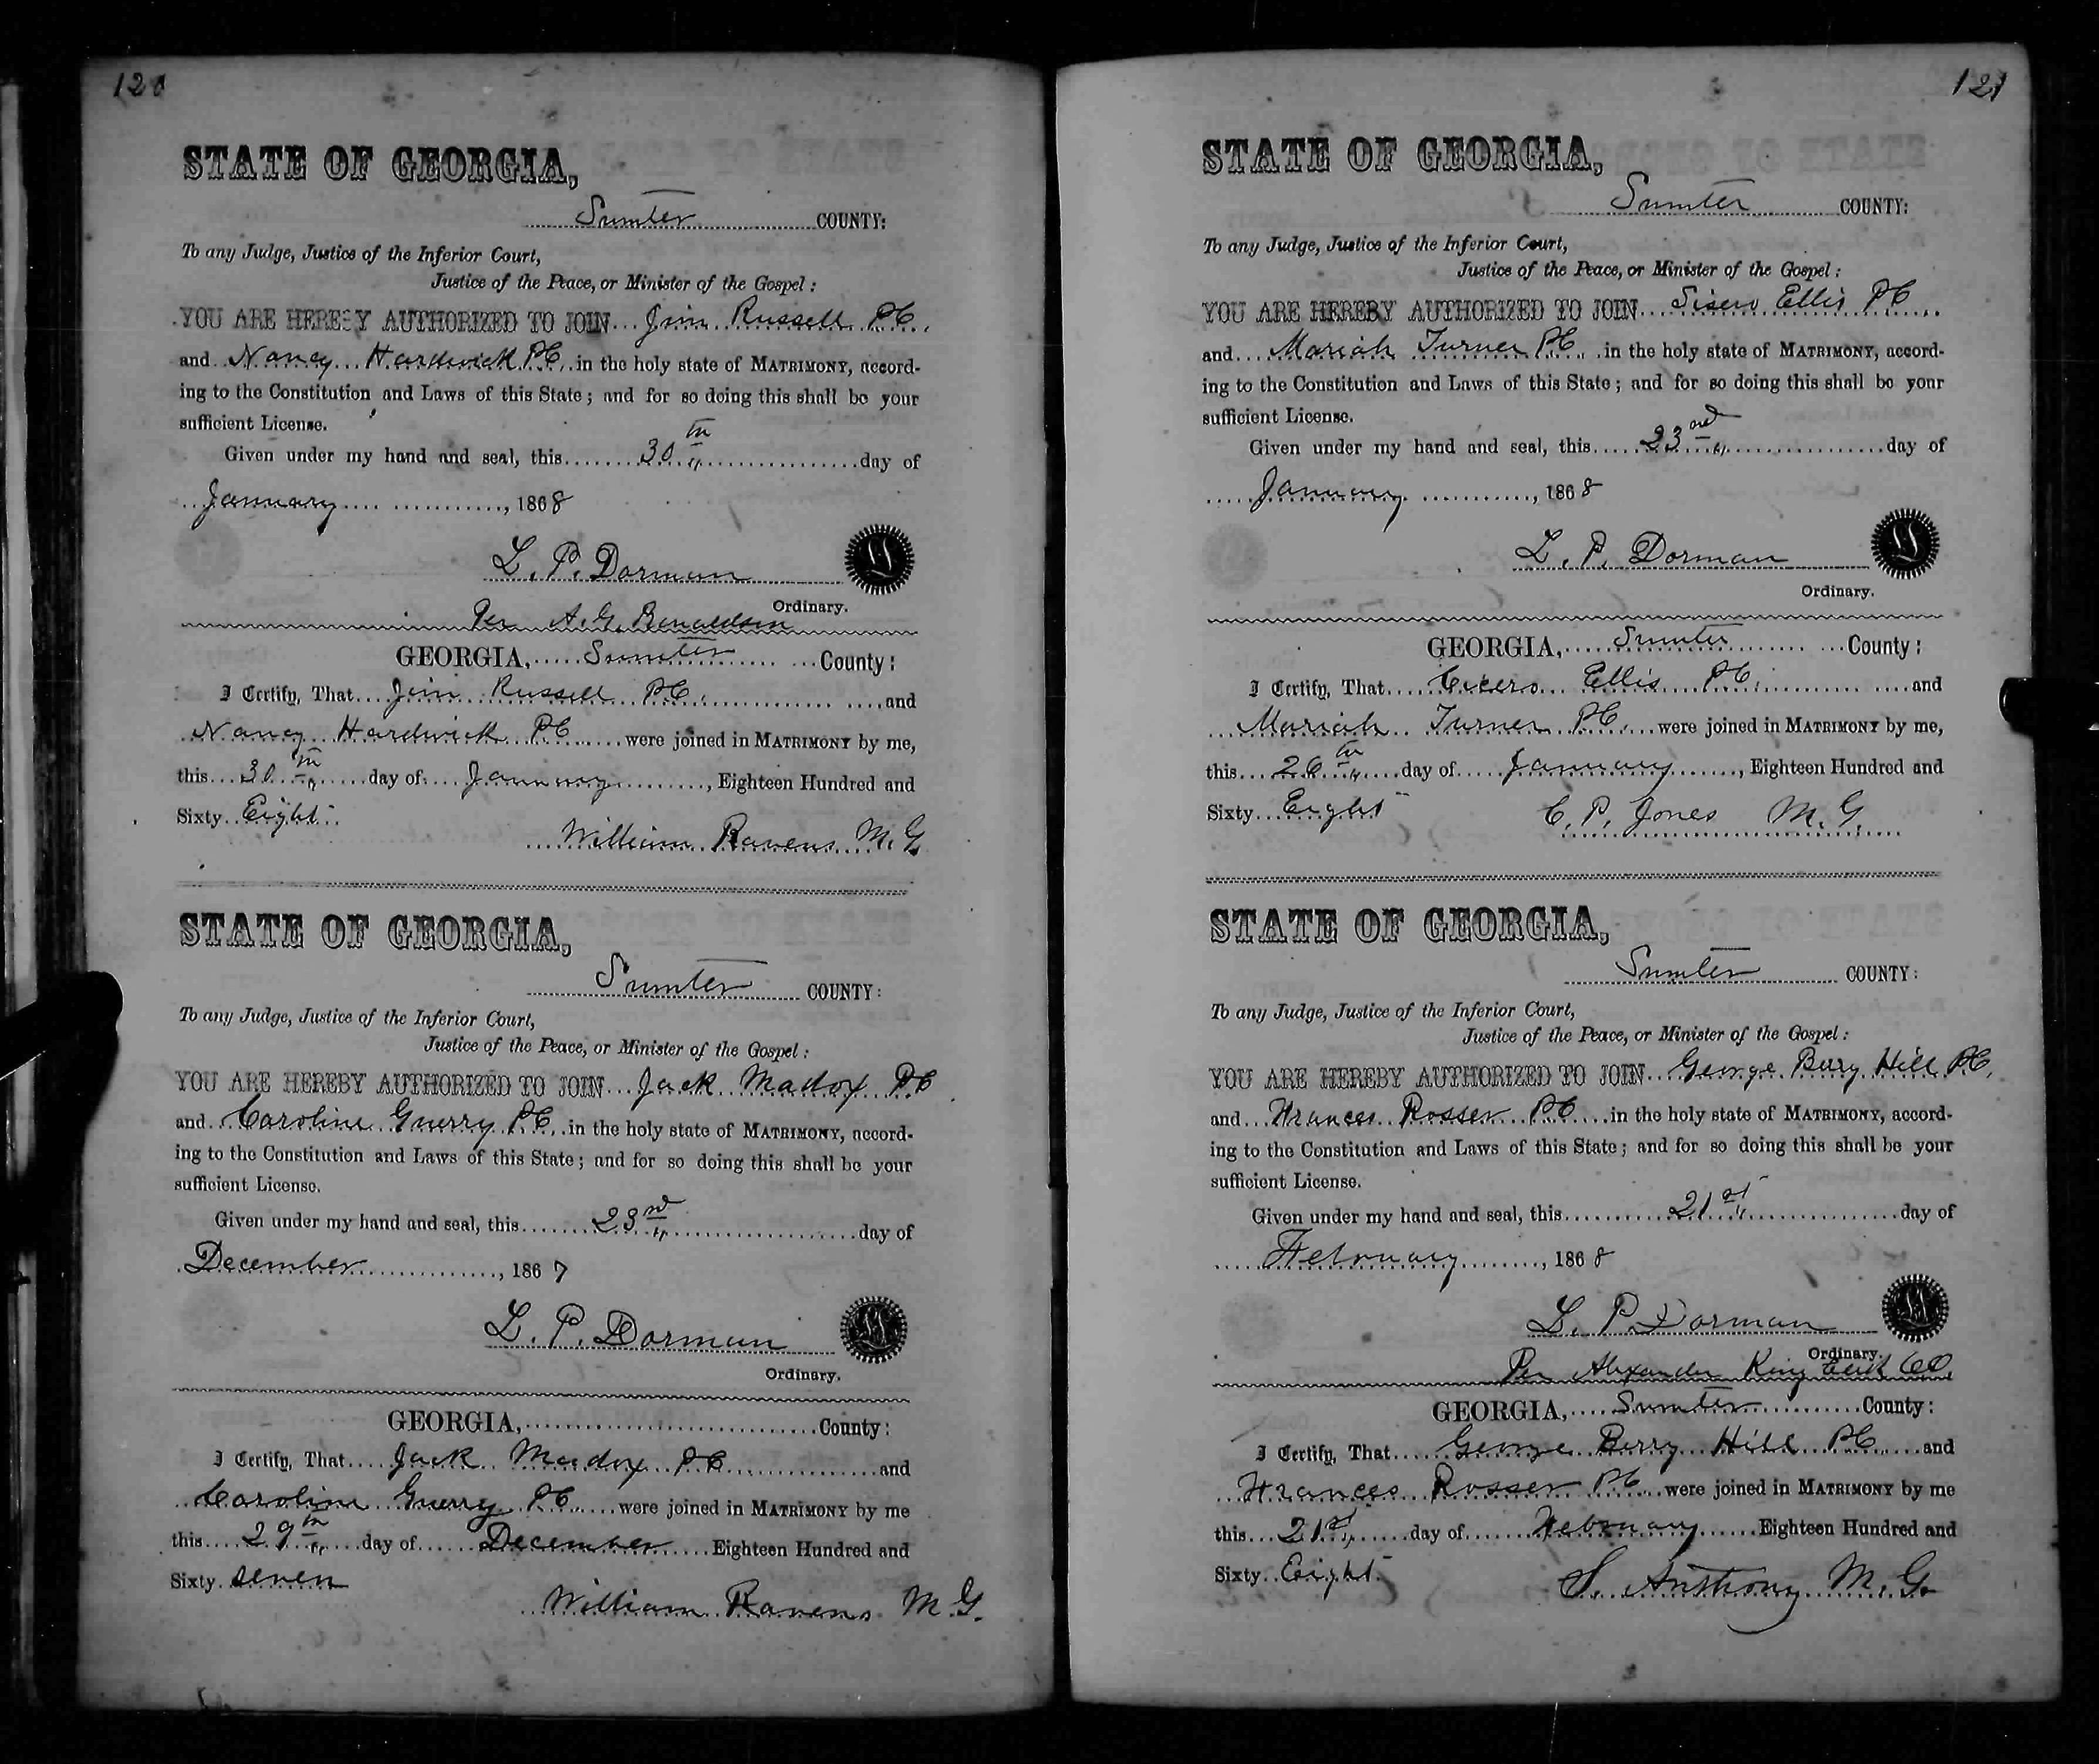 120
STATE OF GEORGIA,
Sumter COUNTY:
To any Judge, Justice of the Inferior Court,
Justice of the Peace, or Minister of the Gospel:
YOU ARE HEREBY AUTHORIZED TO JOIN Jim Russell PC,
and Nancy Hardwick PC, in the holy state of MATRIMONY, accord-
ing to the Constitution and Laws of this State; and for so doing this shall be your
sufficient License.
Given under my hand and seal, this 30th day of
January, 1868
L. P. Dorman
Ordinary.
Per A. G. Ronaldson
GEORGIA, Sumter County:
I Certify, That Jim Russell PC. and
Nancy Hardwick PC were joined in MATRIMONY by me,
this 30th day of January, Eighteen Hundred and
Sixty Eight
William Ravens M. G.
STATE OF GEORGIA,
Sumter COUNTY:
To any Judge, Justice of the Inferior Court,
Justice of the Peace, or Minister of the Gospel:
YOU ARE HEREBY AUTHORIZED TO JOIN Jack Madox PC
and Caroline Guerry PC, in the holy state of MATRIMONY, accord-
ing to the Constitution and Laws of this State; and for so doing this shall be your
sufficient License.
Given under my hand and seal, this 23rd day of
December, 1867
L. P. Dorman
Ordinary.
GEORGIA, County:
I Certify, That Jack Madox PC and
Caroline Guerry PC were joined in MATRIMONY by me
this 29th day of December Eighteen Hundred and
Sixty seven
William Ravens M. G.
121
STATE OF GEORGIA,
Sumter COUNTY:
To any Judge, Justice of the Inferior Court,
Justice of the Peace, or Minister of the Gospel:
YOU ARE HEREBY AUTHORIZED TO JOIN Sisero Ellis PC
and Mariah Turner PC, in the holy state of MATRIMONY, accord-
ing to the Constitution and Laws of this State; and for so doing this shall be your
sufficient License.
Given under my hand and seal, this 23rd day of
January, 1868
L. P. Dorman
Ordinary.
GEORGIA, Sumter County:
I Certify, That Cicero Ellis PC, and
Mariah Turner PC, were joined in MATRIMONY by me,
this 26th day of January, Eighteen Hundred and
Sixty Eight
C. P. Jones M. G.
STATE OF GEORGIA,
Sumter COUNTY:
To any Judge, Justice of the Inferior Court,
Justice of the Peace, or Minister of the Gospel:
YOU ARE HEREBY AUTHORIZED TO JOIN George Bery Hill PC,
and Frances Rosser PC in the holy state of MATRIMONY, accord-
ing to the Constitution and Laws of this State; and for so doing this shall be your
sufficient License.
Given under my hand and seal, this 21st day of
February, 1868
L. P. Dorman
Ordinary.
Per Alexander King Clerk CO,
GEORGIA, Sumter County:
I Certify, That George Berry Hill PC and
Frances Rosser PC were joined in MATRIMONY by me
this 21st day of February Eighteen Hundred and
Sixty Eight
S. Anthony M. G.